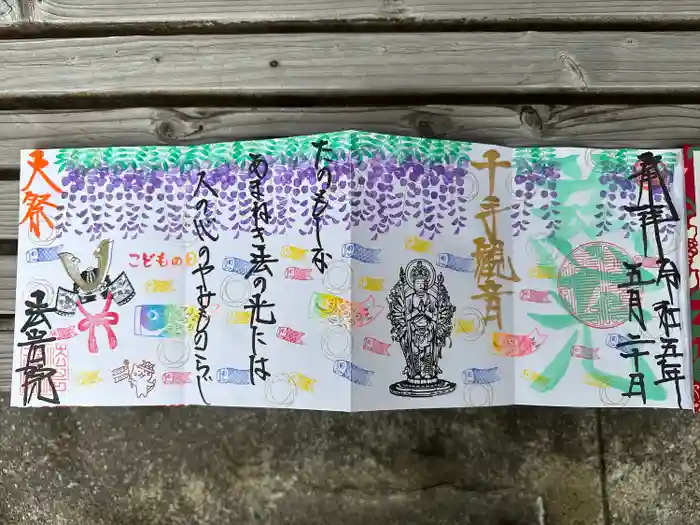 奉拝
令和五年
五月二十日
千手観音
たのもしな
あまねき法の光には
人の心のやみものこらじ
こどもの日
大祭
法音院